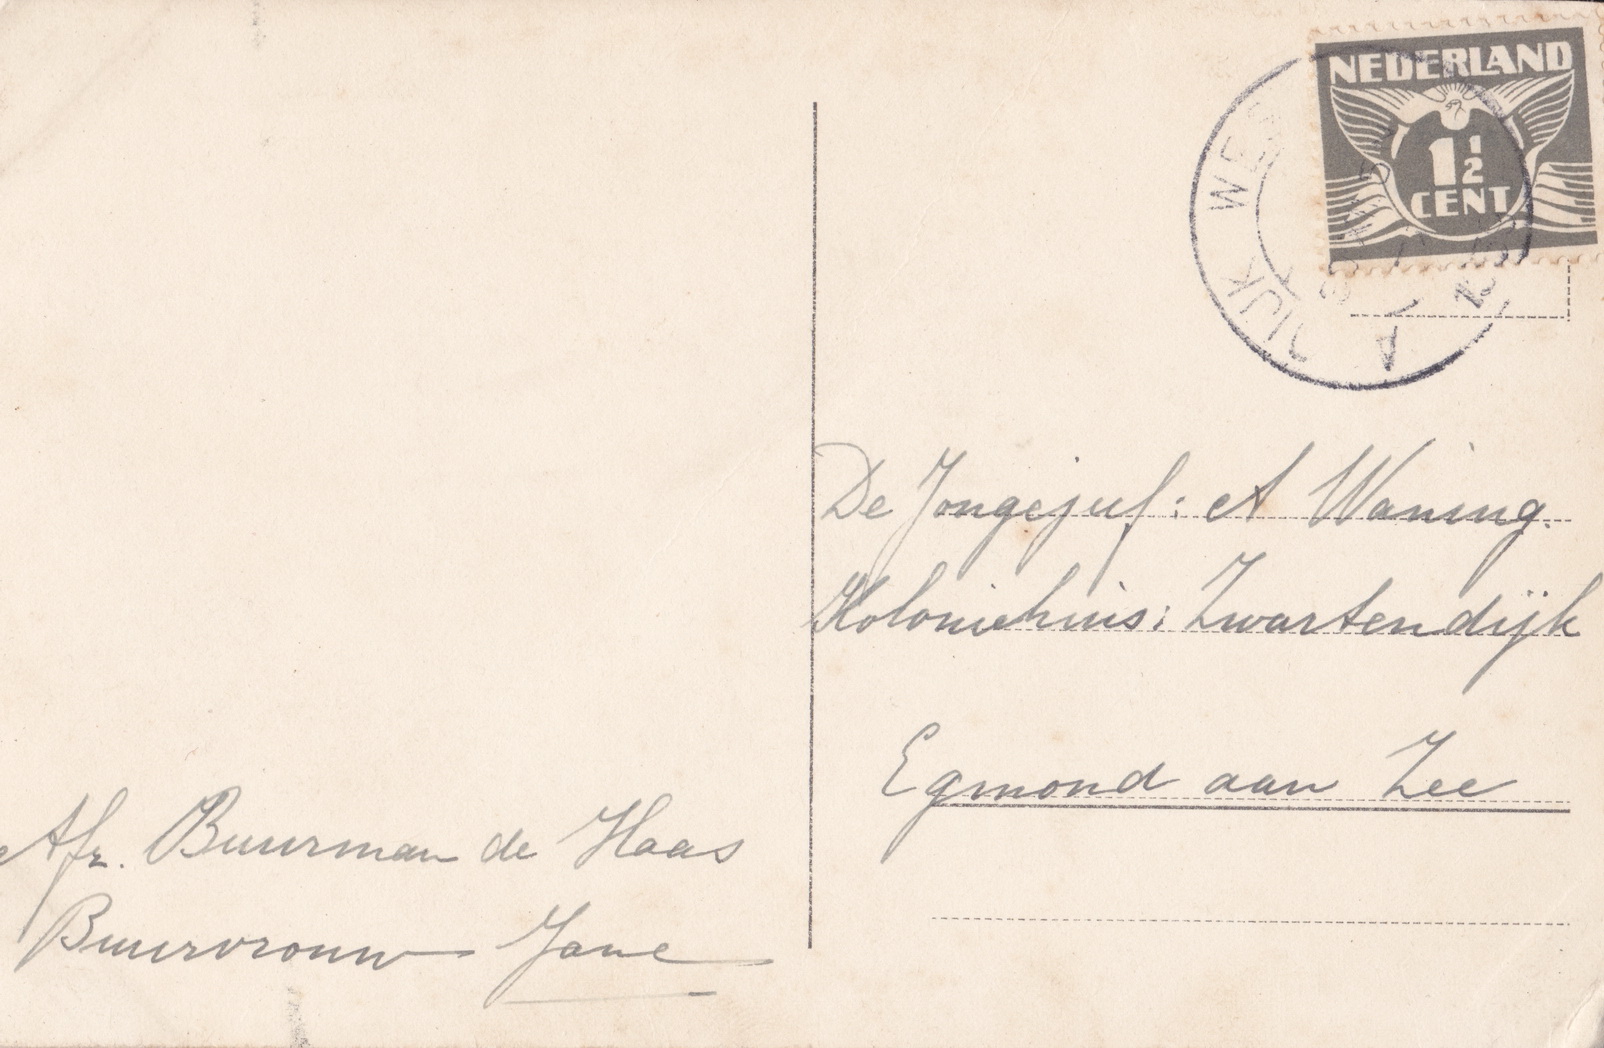 NEDERLAND
1½
CENT
WIJK WES
De Jongejuf: A Waning.
Koloniehuis: Zwartendijk
Egmond aan Zee
Afz. Buurman de Haas
Buurvrouw Jane